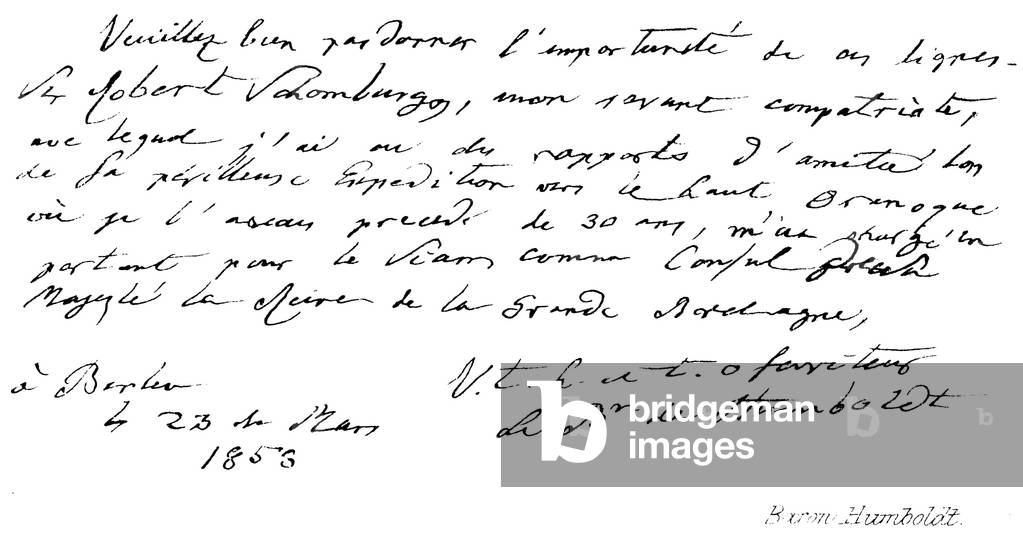 Veuillez bien pardonner l'importunité de ces lignes.
Sir Robert Schomburgk, mon savant compatriote,
avec lequel j'ai eu des rapports d'amitié lors
de Sa périlleuse Expedition vers le haut Orenoque
où je l'avais precedé de 30 ans, m'a chargé en
partant pour le Siam comme Consul de Sa
Majesté la Reine de la Grande Bretagne,
à Berlin
le 23 de Mars
1853
V. t. h. et t. o serviteur
Humboldt
bridgeman
images
b
b
b
Baron Humboldt.